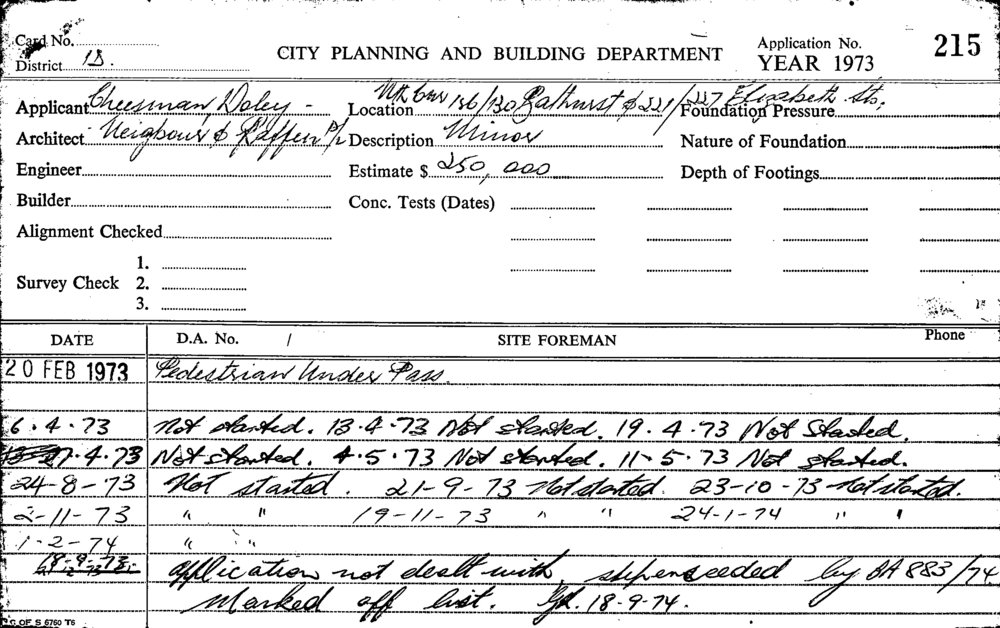 Card No.
CITY PLANNING AND BUILDING DEPARTMENT
Application No. 215
District 1B.
YEAR 1973
Applicant Cheesman Doley -
Location NR Cnr 126/130 Bathurst & 221/227 Elizabeth Sts.
Foundation Pressure
Architect Neigbour & Raffen P/L
Description Minor
Nature of Foundation
Engineer
Estimate $ 250,000
Depth of Footings
Builder
Conc. Tests (Dates)
Alignment Checked
1.
Survey Check 2.
3.
DATE D.A. No. / SITE FOREMAN Phone
20 FEB 1973 Pedestrian Under Pass.
6.4.73 Not started. 13.4.73 Not started. 19.4.73 Not Started.
27.4.73 Not started. 4.5.73 Not started. 11-5.73 Not started.
24-8-73 Not started. 21-9-73 Not started. 23-10-73 Not started.
2-11-73 " " 19-11-73 " " 24-1-74 " "
1-2-74 " "
application not dealt with, stepenseeded by BA 883/74
Marked off list. 18-9-74.
C OF S 6760 T6